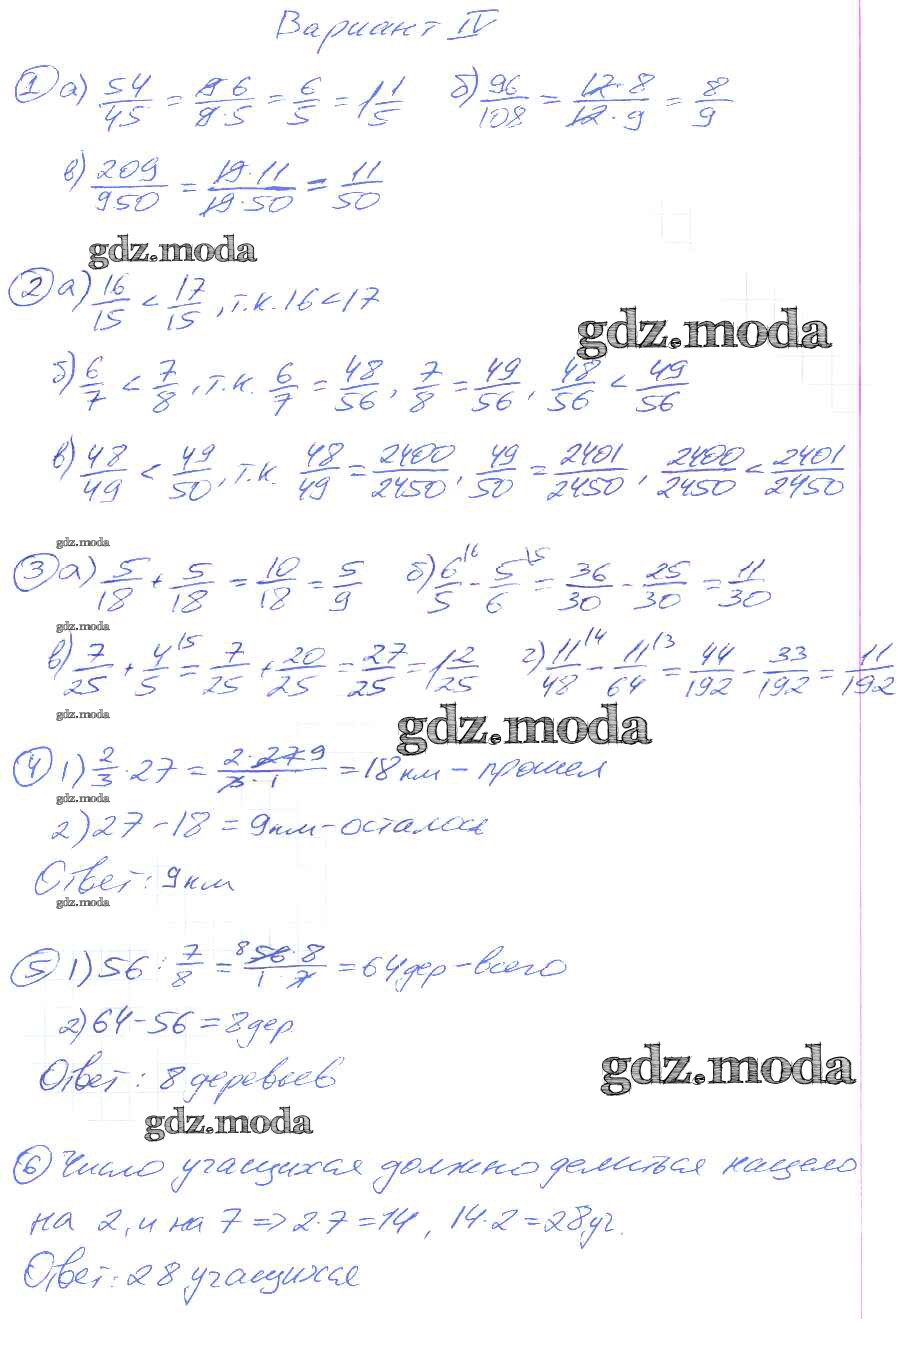 Вариант IV
① а) 54/45 = 9·6/9·5 = 6/5 = 1 1/5 б) 96/108 = 12·8/12·9 = 8/9
в) 209/950 = 19·11/19·50 = 11/50
gdz.moda
② а) 16/15 < 17/15, т.к. 16 < 17
gdz.moda
б) 6/7 < 7/8, т.к. 6/7 = 48/56, 7/8 = 49/56, 48/56 < 49/56
в) 48/49 < 49/50, т.к. 48/49 = 2400/2450, 49/50 = 2401/2450, 2400/2450 < 2401/2450
gdz.moda
③ а) 5/18 + 5/18 = 10/18 = 5/9 б) 6/5 \6 - 5/6 \5 = 36/30 - 25/30 = 11/30
gdz.moda
в) 7/25 + 4/5 \5 = 7/25 + 20/25 = 27/25 = 1 2/25 г) 11/48 \4 - 11/64 \3 = 44/192 - 33/192 = 11/192
gdz.moda
gdz.moda
④ 1) 2/3 · 27 = 2·27 9/3·1 = 18 км - прошел
gdz.moda
2) 27 - 18 = 9 км - осталось
Ответ: 9 км
gdz.moda
⑤ 1) 56 : 7/8 = 8 56·8/1 7 = 64 дер - всего
2) 64 - 56 = 8 дер
Ответ: 8 деревьев
gdz.moda
gdz.moda
⑥ Число учащихся должно делиться нацело
на 2, и на 7 => 2·7 = 14, 14·2 = 28 уч.
Ответ: 28 учащихся